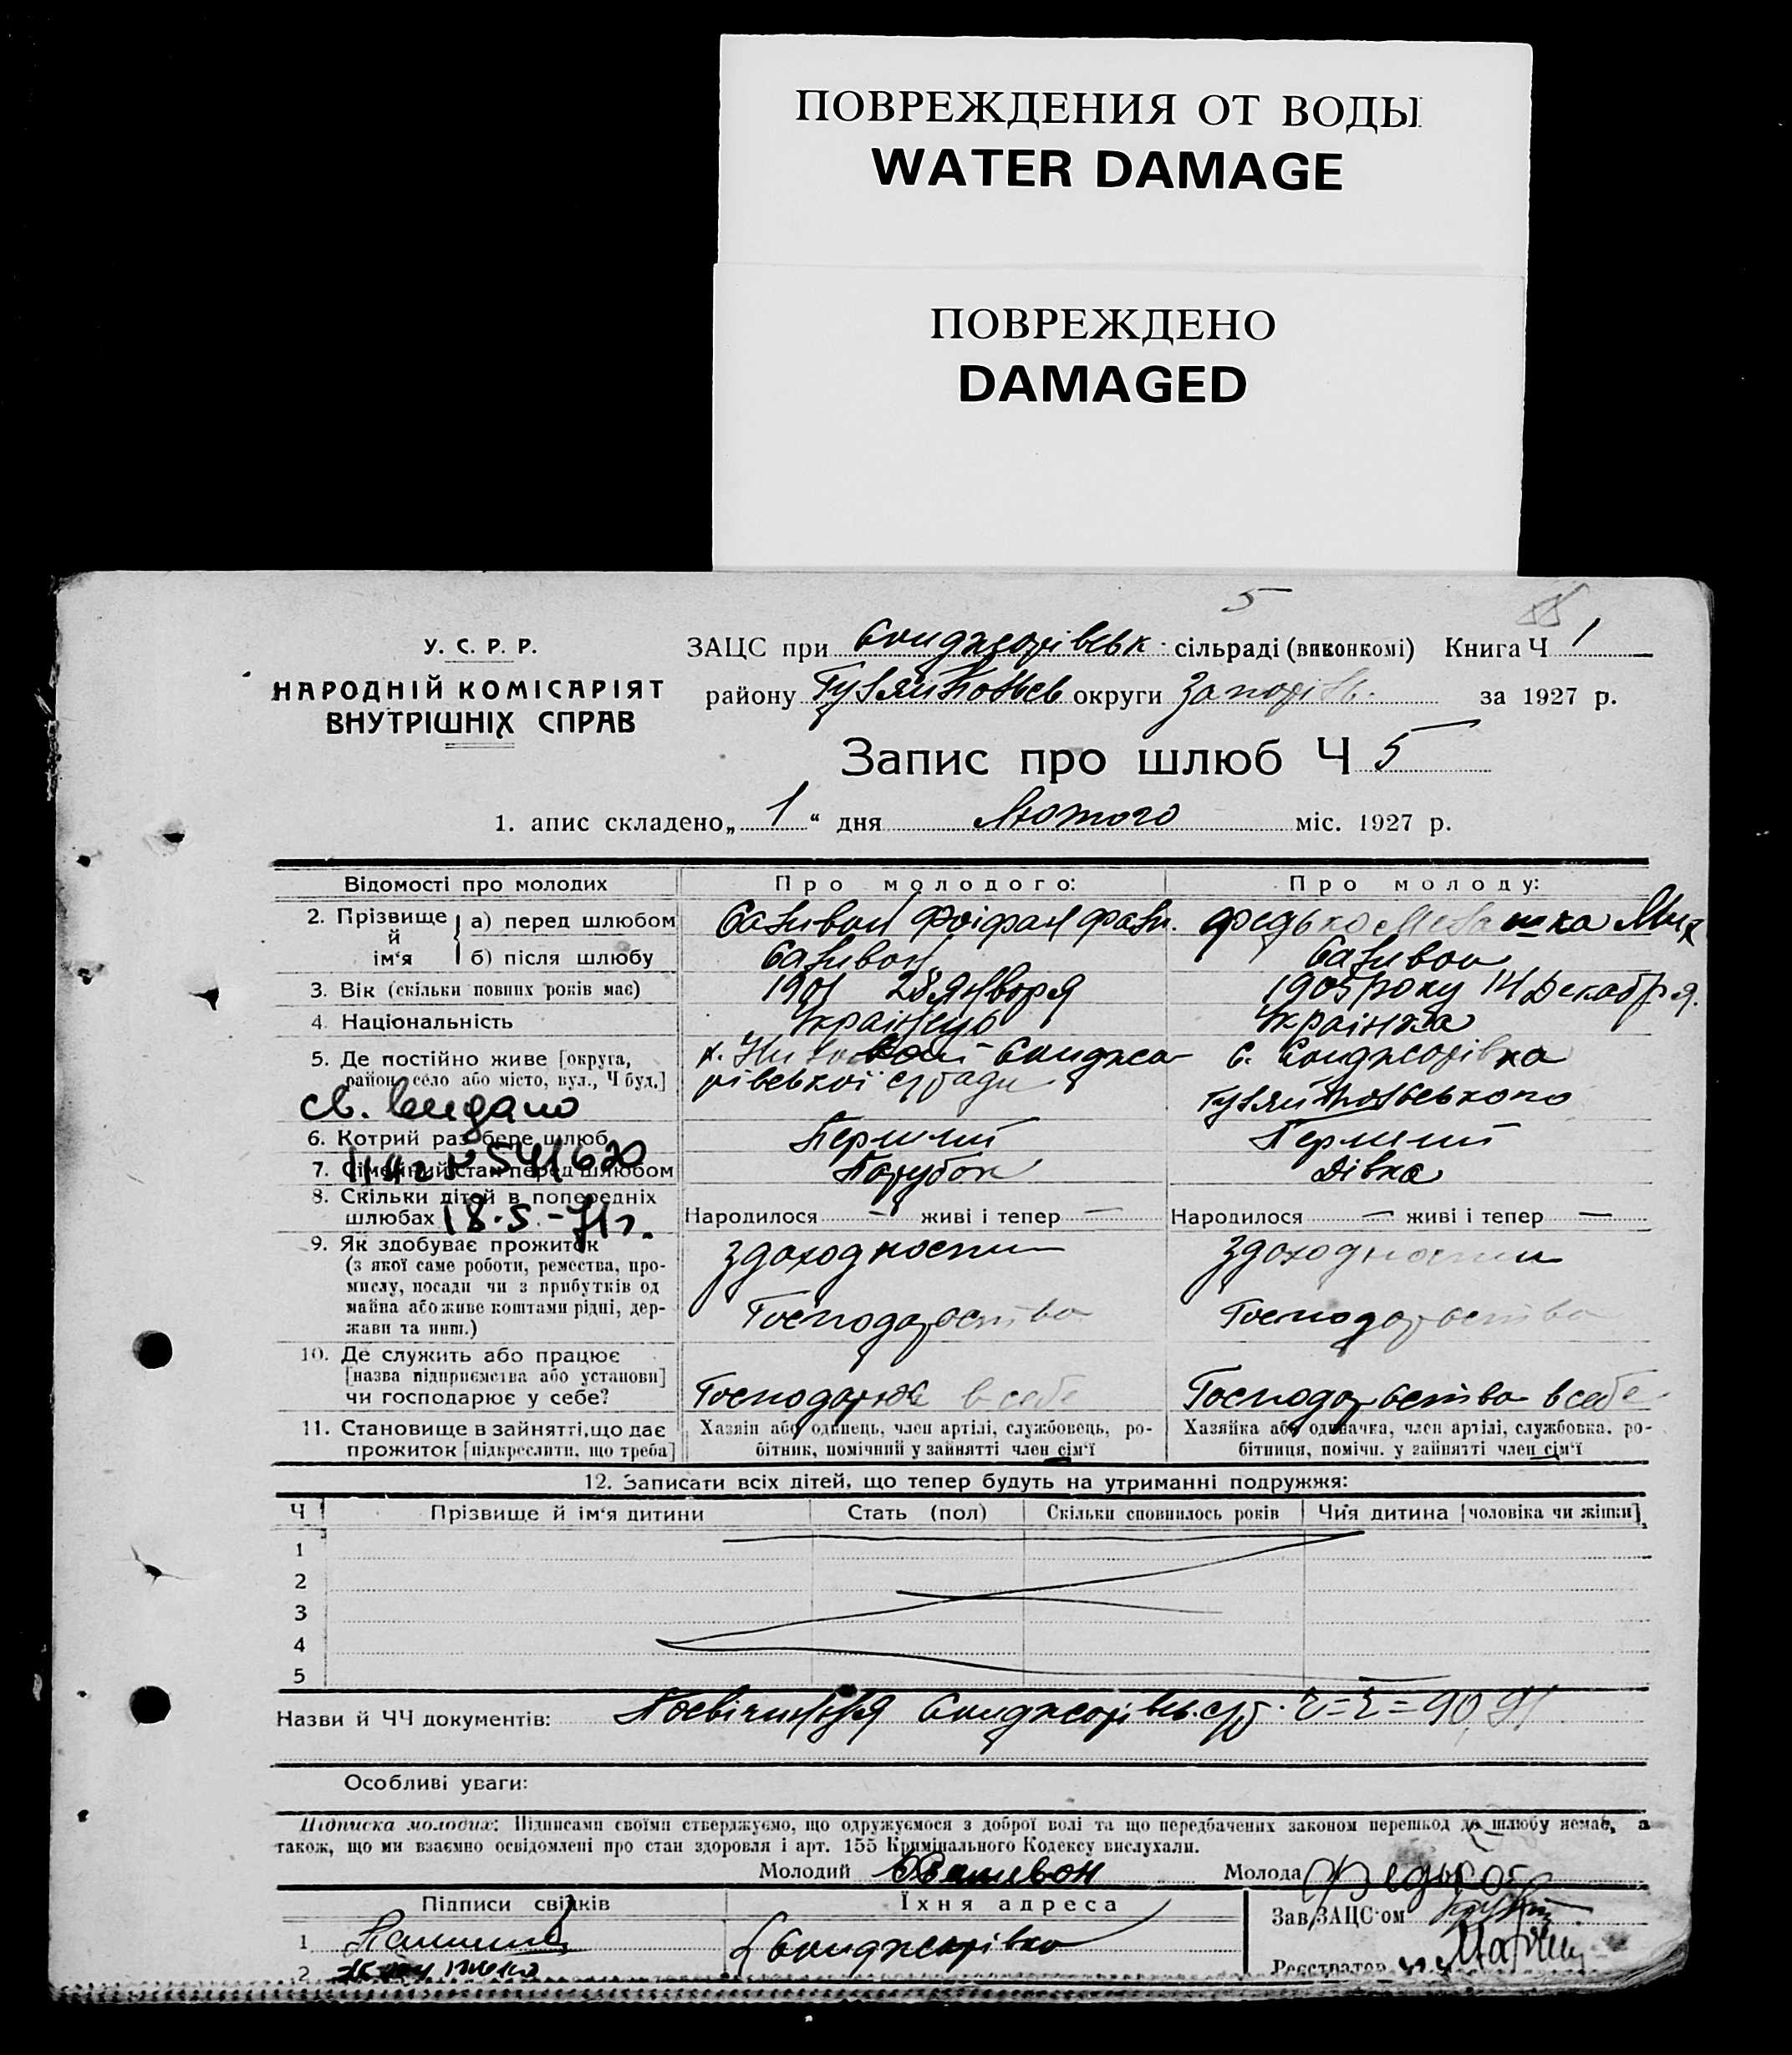 ПОВРЕЖДЕНИЯ ОТ ВОДЫ
WATER DAMAGE
ПОВРЕЖДЕНО
DAMAGED
5
У. С. Р. Р.
НАРОДНІЙ КОМІСАРІЯТ
ВНУТРІШНІХ СПРАВ
ЗАЦС при Санджарівськ. сільраді (виконкомі) Книга Ч 1
району Гуляйпольсь округи Запоріз. за 1927 р.
Запис про шлюб Ч 5
1. апис складено „ 1 “ дня Лютого міс. 1927 р.
Відомості про молодих
Про молодого:
Про молоду:
2. Прізвище й ім‘я
а) перед шлюбом
Саливон
Федько Мих
б) після шлюбу
Саливон
Саливон
3. Вік (скільки повних років має)
1901 28 Января
1905 року 14 Декабря.
4. Національність
Українець
Українка
5. Де постійно живе [округа, район, село або місто, вул., Ч буд.]
х. Санджа-
рівської с/ради
с. Санджарівка
Гуляйпольського
св. видано
№ 541620
18.5.-71 г.
6. Котрий раз бере шлюб
Перший
Перший
7. Сімейний стан перед шлюбом
Парубок
Дівка
8. Скільки дітей в попередніх шлюбах
Народилося — живі і тепер —
Народилося — живі і тепер —
9. Як здобуває прожиток
(з якої саме роботи, ремества, про-
мислу, посади чи з прибутків од
майна або живе коштами рідні, дер-
жави та инш.)
здоходности
Господарства
здоходности
Господарства
10. Де служить або працює
[назва підприємства або установи]
чи господарює у себе?
Господарює в себе
Господарства в себе
11. Становище в зайнятті, що дає
прожиток [підкреслити, що треба]
Хазяїн або одинець, член артілі, службовець, ро-
бітник, помічний у зайнятті член сім‘ї
Хазяйка або одиначка, член артілі, службовка, ро-
бітниця, помічн. у зайнятті член сім‘ї
12. Записати всіх дітей, що тепер будуть на утриманні подружжя:
Ч Прізвище й ім‘я дитини Стать (пол) Скільки сповнилось років Чия дитина [чоловіка чи жінки]
1
2
3
4
5
Назви й ЧЧ документів: Посвічиння Санджарівсь. с/р. 90, 91
Особливі уваги:
Підписка молодих: Підписами своїми стверджуємо, що одружуємося з доброї волі та що передбачених законом перешкод до шлюбу немає, а
також, що ми взаємно освідомлені про стан здоровля і арт. 155 Кримінального Кодексу вислухали.
Молодий Саливон Молода Федько
Підписи свідків Їхня адреса
1 Санджарівка
2
Зав/ЗАЦС‘ом
Реєстратор